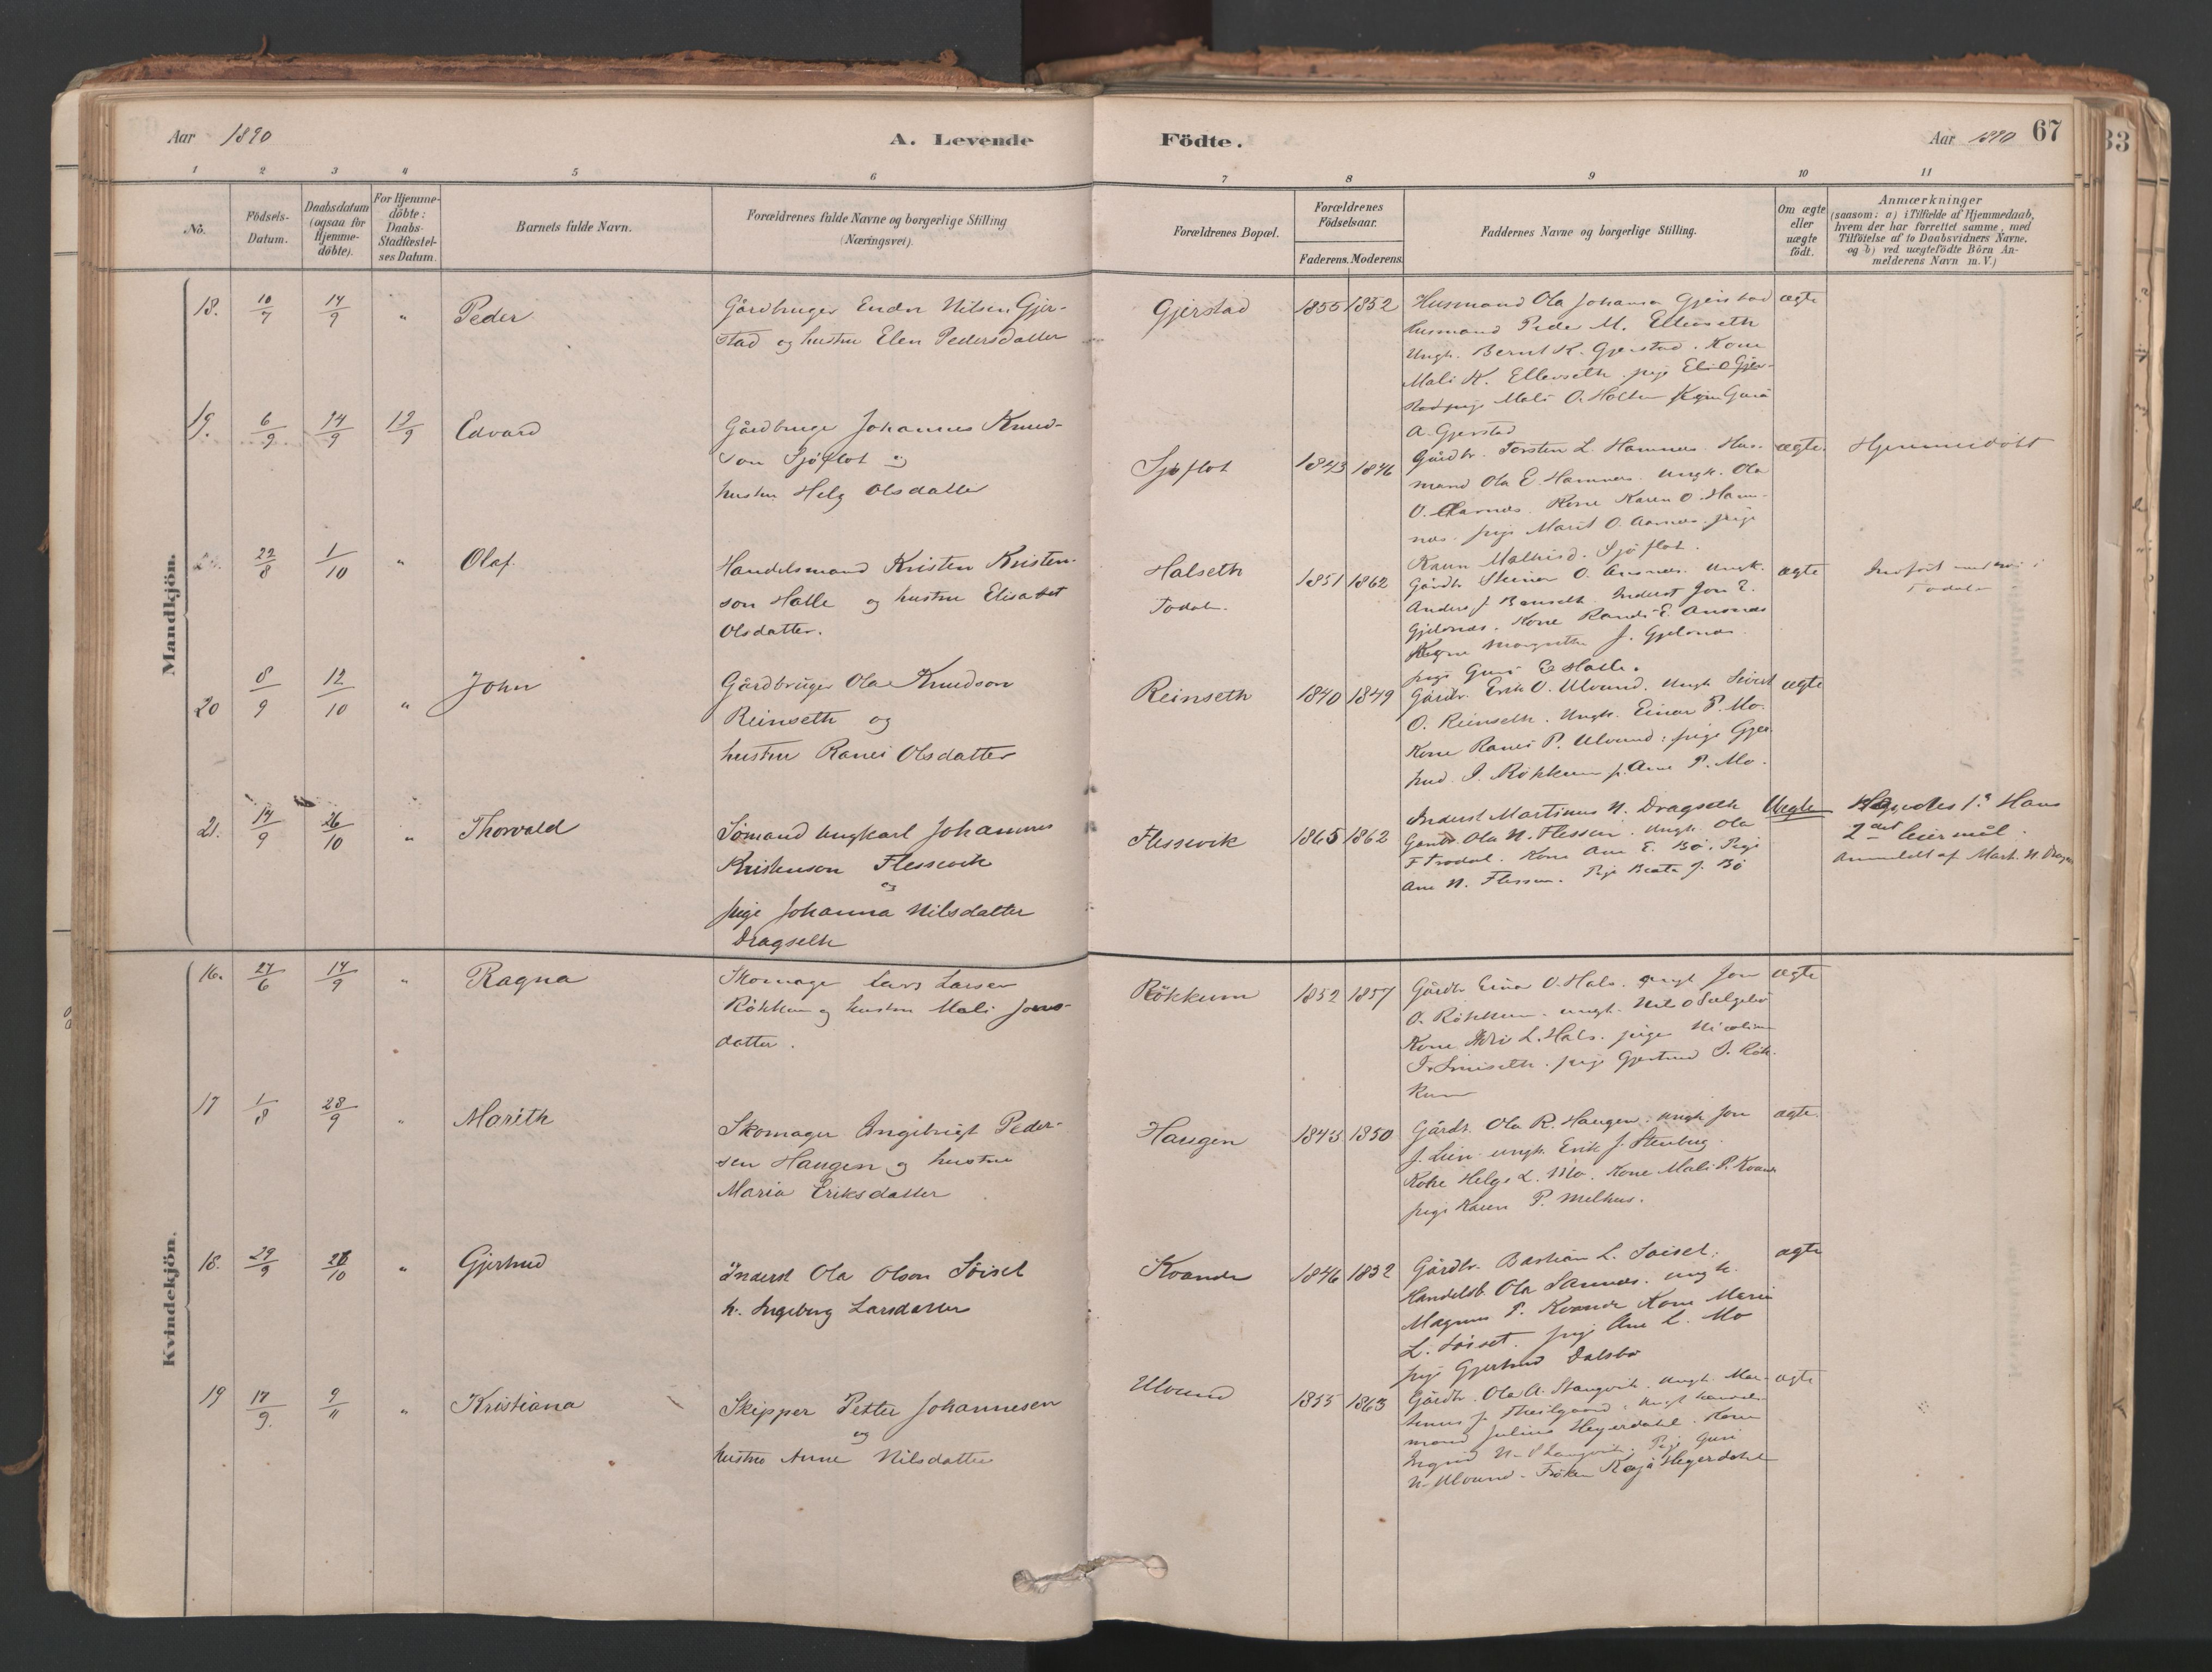 Aar 1890
A. Levende
Födte.
Aar 1890 67
33
1 2 3 4 5 6
7 8 9 10 11
No.
Födsels-
Datum.
Daabsdatum
(ogsaa for
Hjemme-
döbte).
For Hjemme-
döbte:
Daabs-
Stadfæstel-
ses Datum.
Barnets fulde Navn.
Forældrenes fulde Navne og borgerlige Stilling
(Næringsvei).
Forældrenes Bopæl.
Forældrenes
Födselsaar.
Faderens. Moderens.
Faddernes Navne og borgerlige Stilling.
Om ægte
eller
uægte
födt.
Anmærkninger
(saasom: a) i Tilfælde af Hjemmedaab,
hvem der har forrettet samme, med
Tilföielse af to Daabsvidners Navne,
og b) ved uægtefödte Börn An-
melderens Navn m. V.)
Mandkjön.
18. 10/7 14/9 " Peder
Gårdbruger Endre Nilsen Gjer-
stad og hustru Elen Pedersdatter
Gjerstad 1855 1852
Husmand Ola Johansa Gjerstad
husmand Peder M. Ellenseth
Ungk. Bernt K. Gjerstad. Kone
Mali K. Ellenseth pige Eli O Gjer-
stad pige Mali O. Holten Guri
A. Gjerstad
ægte
19. 6/9 14/9 13/9 Edvard
Gårdbruge Johannes Knud-
son Sjöflot og
hustru Helg Olsdatter
Sjöflot 1843 1846
Gårdbr. Torsten L. Hamnes. Hus-
mand Ola E. Hamnes. Ungk. Ola
O. Aarnes. Kone Karen O. Ham-
nes. pige Marit O. Aarnes. pige
Karen Mathisd. Sjöflot.
ægte.
Hjemmedöbt
22/8 1/10 " Olaf.
Handelsmand Kristen Kristen-
son Halle og hustru Elisabet
Olsdatter.
Halseth
Todal.
1851 1862
Gårdb. Steinar O. Ansnes. Ungk.
Anders J. Bænseth. Inderst Jon E.
Gjelsnes. Kone Randi E. Ansnes
Margrethe J. Gjelsnes.
pige Guri E Halle.
ægte
Todal
20 8/9 12/10 " John
Gårdbruger Ola Knudson
Reinseth og
hustru Ranei Olsdatter
Reinseth 1840 1849
Gårdbr. Erik O. Ulvund. Ungk. Sivert
O. Reinseth. Ungk. Einar P. Mo.
Kone Ranei P. Ulvund: pige Gjer-
trud I. Rökkum p. Ane P. Mo.
ægte
21. 14/9 26/10 " Thorvald
Sömand ungkarl Johannes
Kristenson Flessevik
og
pige Johanna Nilsdatter
Dragseth
Flessevik 1865 1862
Inderst Martinus N. Dragseth
Gårdb. Ola N. Flessen. Ungk. Ola
F Trodal. Kone Ane E. Bö. Pige
Ane N. Flessen. Pige Beate J. Bö
Uægte
Hans
2det leiermål.
Anmeldt af Mart. N. Dragse
Kvindekjön.
16. 27/6 14/9 " Ragna
Skomager Lars Larsen
Rökkum og hustru Mali Jons-
datter.
Rökkum 1852 1857
Gårdb Einar O. Hals. ungk Jon
O. Rökkum. ungk. Nils O Sælgebö
Kone L. Hals. pige Nicoline
pige Gjertrud I. Rök-
kum
ægte
17 1/8 28/9 " Marith
Skomager Ingebrigt Peder-
sen Haugen og hustru
Maria Eriksdatter
Haugen 1843 1850
Gårdb. Ola R. Haugen. ungk Jon
J. Lien. ungk. Erik J. Stenberg.
Kone Helge L. Mo. Kone Mali P. Kvande
pige Karen P. Melhus.
ægte.
18. 29/9 26/10 " Gjertrud
Inderst Ola Olson Söiset
h. Ingeborg Larsdatter
Kvande 1846 1852
Gårdbr. Bastian L. Söiset.
Handelsb. Ola Sannes. ungk.
Magnus P. Kvande Kone Maria
L. Söiset. pige Ane L. Mo
pige Gjertrud Dalsbö
ægte
19 17/9. 9/11 " Kristiana
Skipper Petter Johannesen
og
hustru Anne Nilsdatter
Ulvund 1855 1863
Gårdbr. Ola A. Stangvik. Ungk. Mar-
tinus J. Theilgaard. Ungk handels-
mand Julius Heyerdahl. Kone
Ingrid N. Stangvik. Pige Guri
N. Ulvund. Fröken Kaja Heyerdahl
ægte